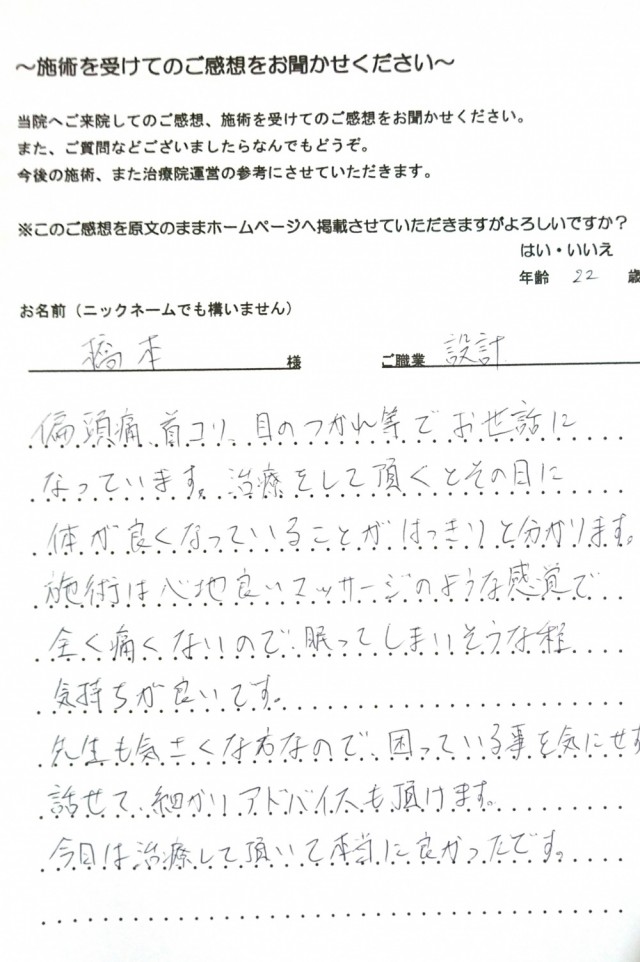 ～施術を受けてのご感想をお聞かせください～
当院へご来院してのご感想、施術を受けてのご感想をお聞かせください。
また、ご質問などございましたらなんでもどうぞ。
今後の施術、また治療院運営の参考にさせていただきます。
※このご感想を原文のままホームページへ掲載させていただきますがよろしいですか？
はい・いいえ
年齢 22 歳
お名前（ニックネームでも構いません）
橋本 様 ご職業 設計
偏頭痛、首コリ、目のつかれ等でお世話に
なっています。治療をして頂くとその日に
体が良くなっていることがはっきりと分かります。
施術は心地良いマッサージのような感覚で
全く痛くないので、眠ってしまいそうな程
気持ちが良いです。
先生も気さくな方なので、困っている事を気にせず
話せて、細かりアドバイスも頂けます。
今日は治療して頂いて本当に良かったです。